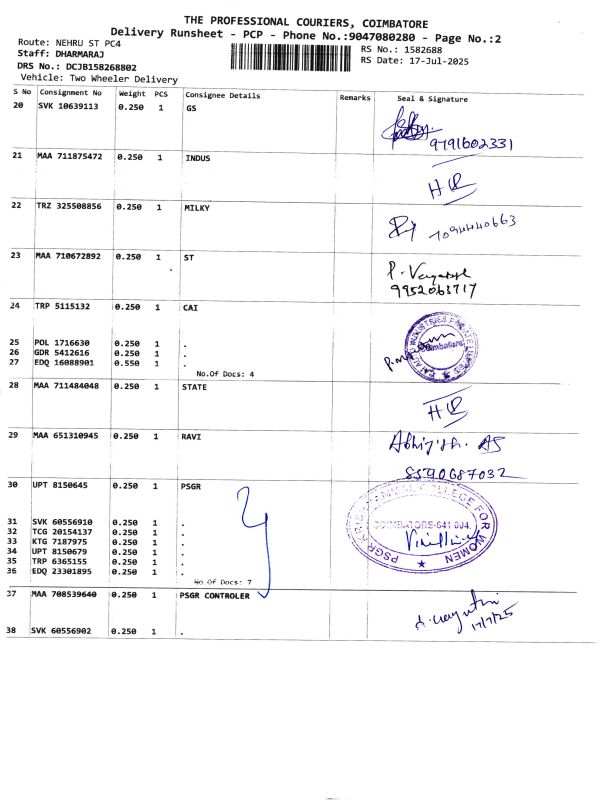 THE PROFESSIONAL COURIERS, COIMBATORE
Delivery Runsheet - PCP - Phone No.:9047080280 - Page No.:2
Route: NEHRU ST PC4
RS No.: 1582688
Staff: DHARMARAJ
RS Date: 17-Jul-2025
DRS No.: DCJB158268802
Vehicle: Two Wheeler Delivery
S No Consignment No Weight PCS Consignee Details Remarks Seal & Signature
20 SVK 10639113 0.250 1 GS
9791602331
21 MAA 711875472 0.250 1 INDUS
22 TRZ 325508856 0.250 1 MILKY
7094440663
23 MAA 710672892 0.250 1 ST
9952063717
24 TRP 5115132 0.250 1 CAI
Coimbatore
25 POL 1716630 0.250 1 .
26 GDR 5412616 0.250 1 .
27 EDQ 16088901 0.550 1 .
No.Of Docs: 4
28 MAA 711484048 0.250 1 STATE
29 MAA 651310945 0.250 1 RAVI
8590687032
30 UPT 8150645 0.250 1 PSGR
COIMBATORE-641 004.
31 SVK 60556910 0.250 1 .
32 TCG 20154137 0.250 1 .
33 KTG 7187975 0.250 1 .
34 UPT 8150679 0.250 1 .
35 TRP 6365155 0.250 1 .
36 EDQ 23301895 0.250 1 .
No Of Docs: 7
37 MAA 708539640 0.250 1 PSGR CONTROLER
17/7/25
38 SVK 60556902 0.250 1 .